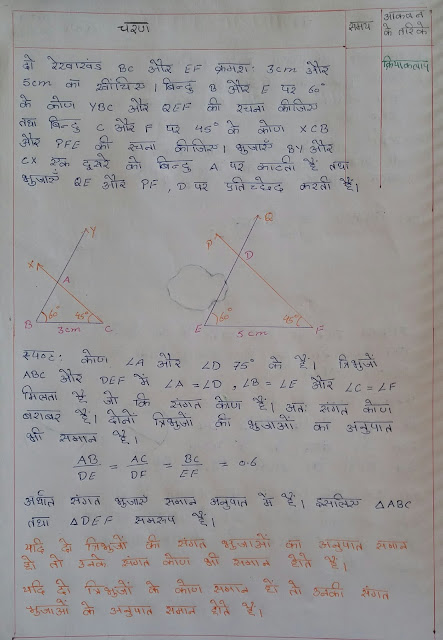 चरण
समय
आकलन
के तरीके
दो रेखाखंड BC और EF क्रमशः 3cm और
क्रियाकलाप
5cm का खींचिए। बिन्दु B और E पर 60°
के कोण YBC और QEF की रचना कीजिए
तथा बिन्दु C और F पर 45° के कोण XCB
और PFE की रचना कीजिए। भुजाएँ BY और
CX एक दूसरे को बिन्दु A पर काटती हैं तथा
भुजाएँ QE और PF, D पर प्रतिच्छेद करती हैं।
Y
Q
X
P
A
D
60°
45°
60°
45°
B
3cm
C
E
5cm
F
स्पष्टतः कोण ∠A और ∠D 75° के हैं। त्रिभुजों
ABC और DEF में ∠A = ∠D, ∠B = ∠E और ∠C = ∠F
मिलता है जो कि संगत कोण हैं। अतः संगत कोण
बराबर हैं। दोनों त्रिभुजों की भुजाओं का अनुपात
भी समान है।
AB/DE = AC/DF = BC/EF = 0.6
अर्थात संगत भुजाएँ समान अनुपात में हैं। इसलिए △ABC
तथा △DEF समरूप हैं।
यदि दो त्रिभुजों की संगत भुजाओं का अनुपात समान
हो तो उनके संगत कोण भी समान होते हैं।
यदि दो त्रिभुजों के कोण समान हों तो उनकी संगत
भुजाओं के अनुपात समान होते हैं।